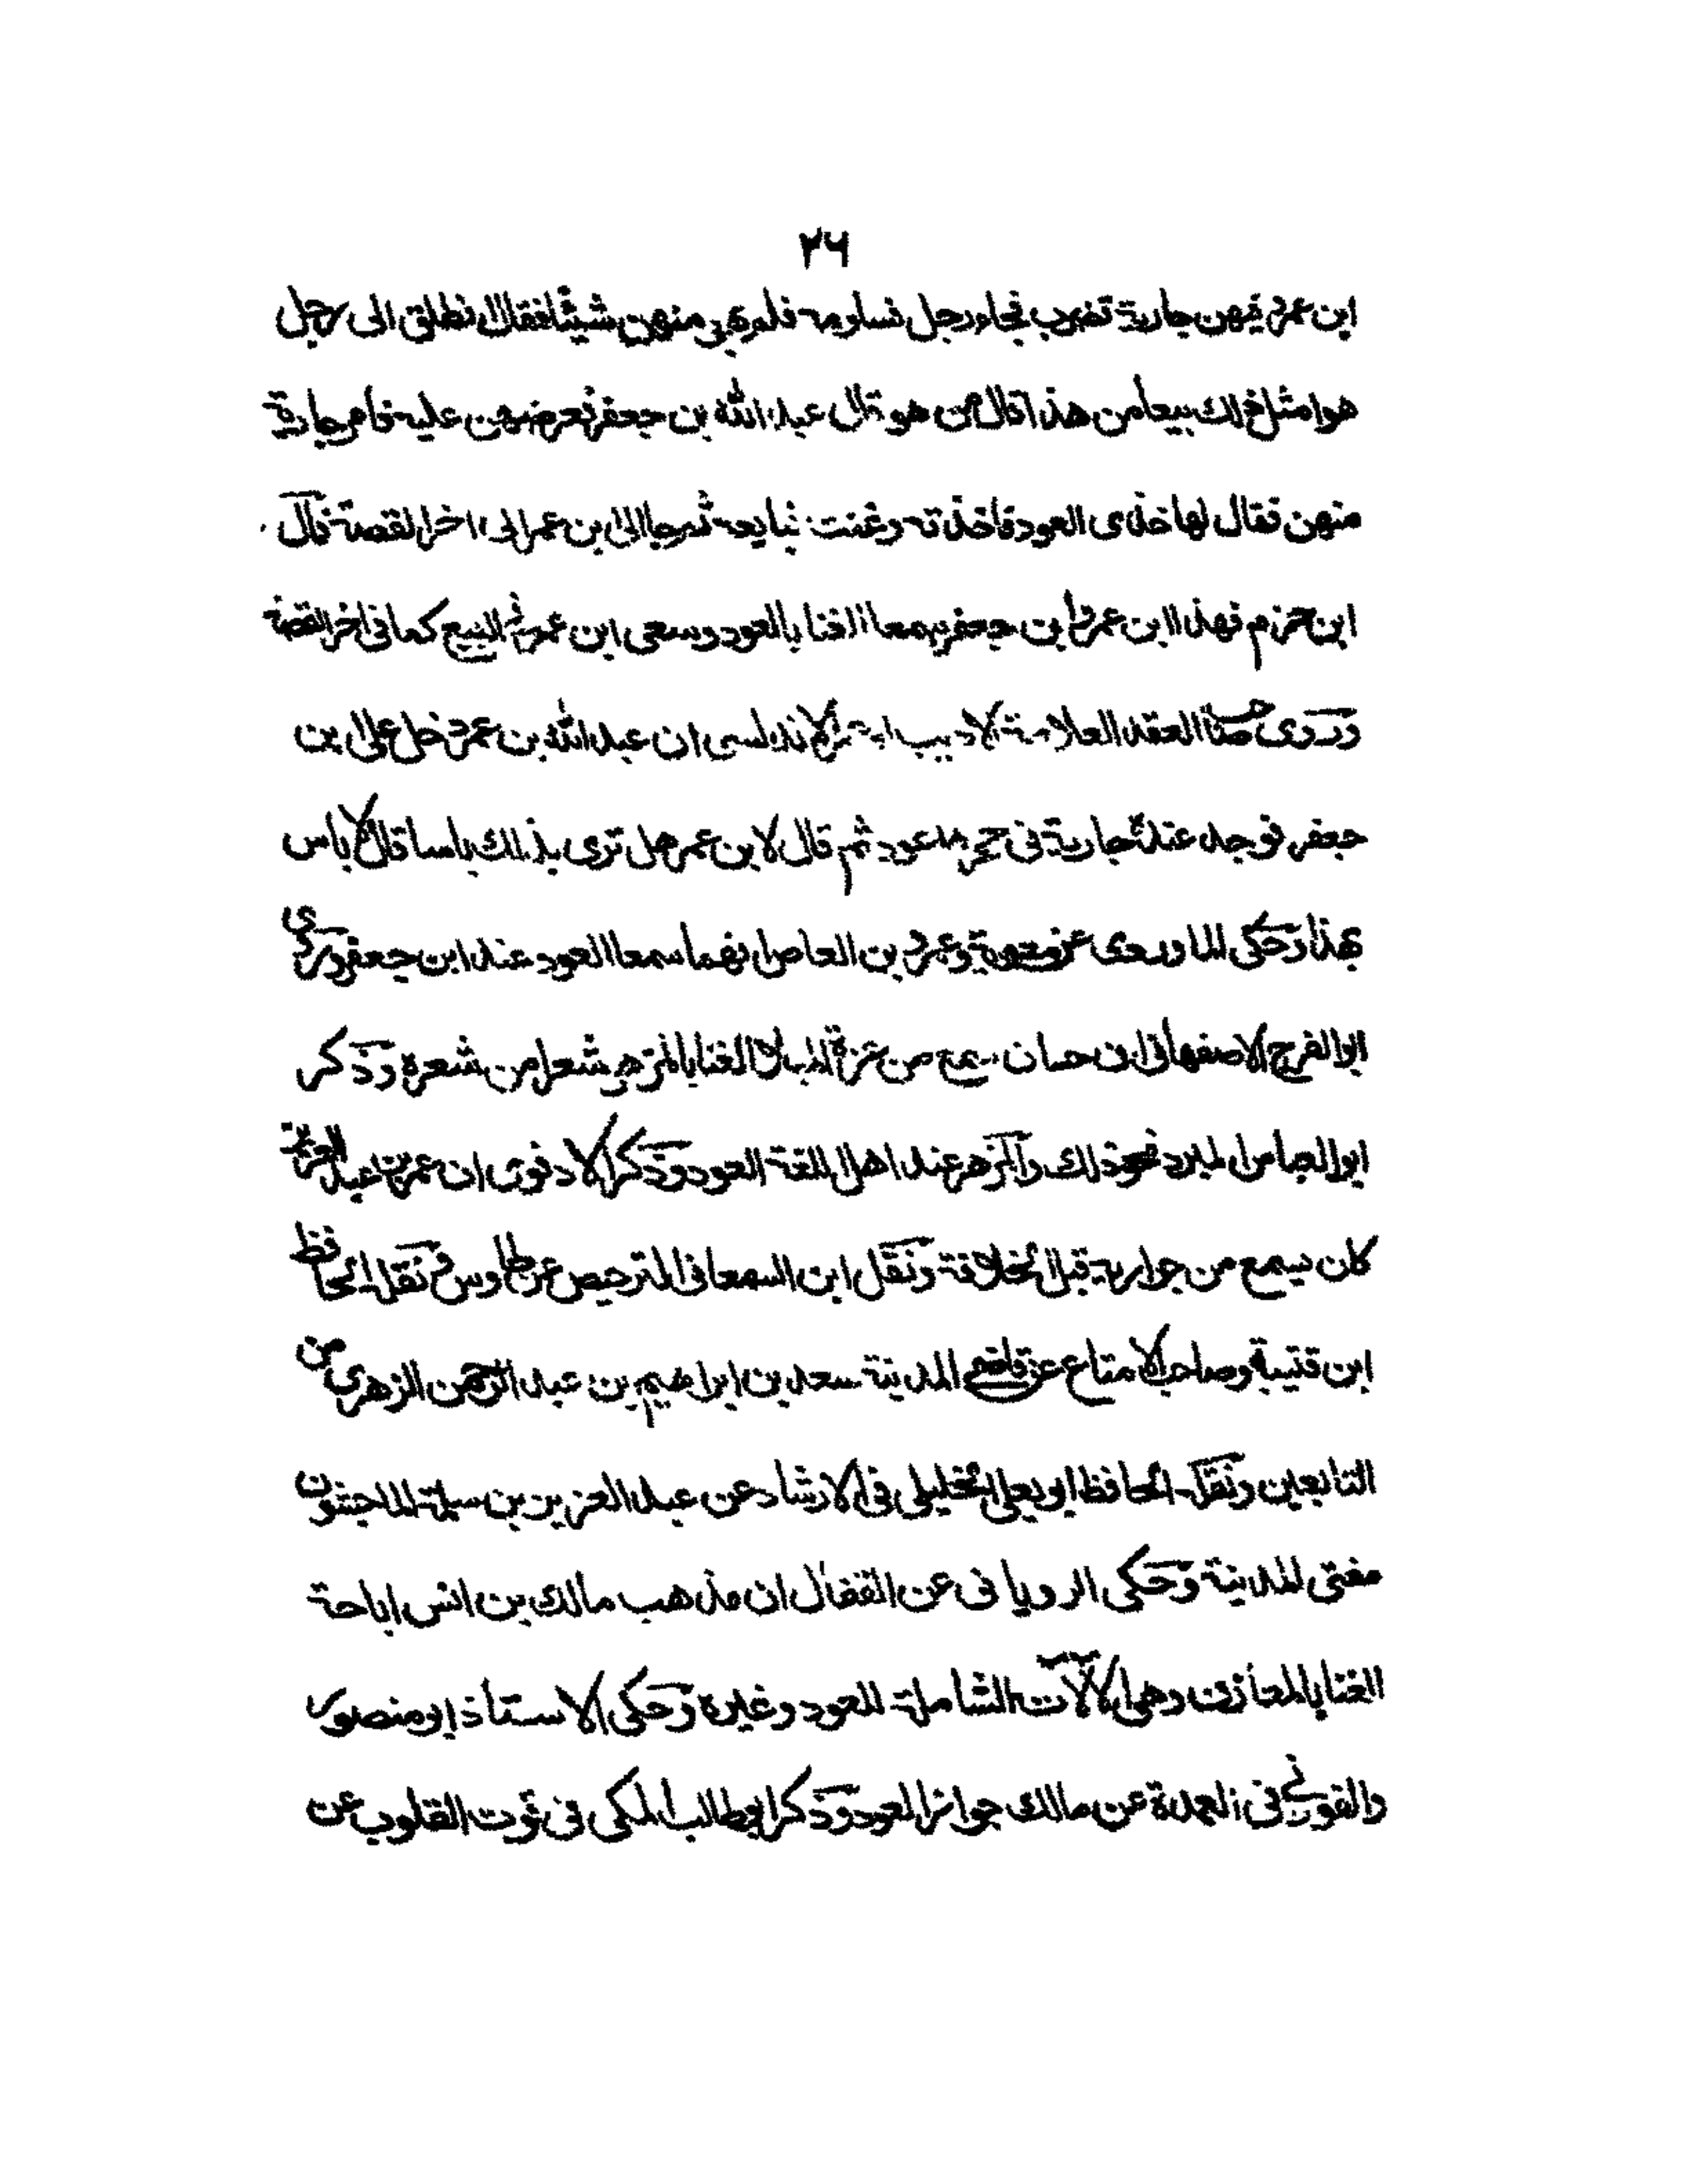 ٢٦
ابن عمر فيهن جارية تضرب فجاء رجل فساومه فلم يهو منهن شيئا فقال انطلق الى رجل
هو امثل لك بيعا من هذا قال من هو قال عبد الله بن جعفر فعرضهن عليه فامر جارية
منهن فقال لها خذى العود فاخذته وغنت فبايعه ثم جا الى ابن عمر الى اخر القصة قال
ابن حزم فهذا ابن عمر وابن جعفر سمعا الغنا بالعود وسعى ابن عمر فى البيع كما فى اخر القصة
وروى صاحب العقد العلامة الاديب ابو عمر الاندلسى ان عبد الله بن عمر دخل على ابن
جعفر فوجد عنده جارية فى حجرها عود ثم قال لابن عمر هل ترى بذلك باسا قال لا باس
بهذا وحكى الماوردى عن معوية وعمرو بن العاص انهما سمعا العود عند ابن جعفر وروى
ابو الفرج الاصفهانى ان حسان سمع من عزة الميلا الغنا بالمزهر بشعر من شعره وذكر
ابو العباس المبرد نحو ذلك والمزهر عند اهل اللغة العود وذكر الادفوى ان عمر بن عبد العزيز
كان يسمع من جواريه قبل الخلافة ونقل ابن السمعانى الترخيص عن طاوس ونقل الحافظ
ابن قتيبة وصاحب الامتاع عن قاضى المدينة سعد بن ابراهيم بن عبد الرحمن الزهرى من
التابعين ونقل الحافظ ابو يعلى الخليلى فى الارشاد عن عبد العزيز بن سلمة الماجشون
مفتى المدينة وحكى الرويانى عن القفال ان مذهب مالك بن انس اباحة
الغنا بالمعازف وهى الآلات الشاملة للعود وغيره وحكى الاستاذ ابو منصور
والفورانى فى العمدة عن مالك جواز العود وذكر ابو طالب المكى فى قوت القلوب عن